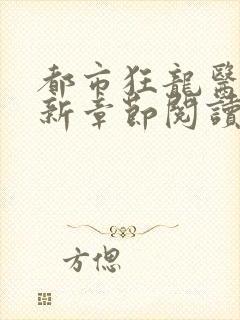 都市狂龍醫
新章節閱讀
方偲